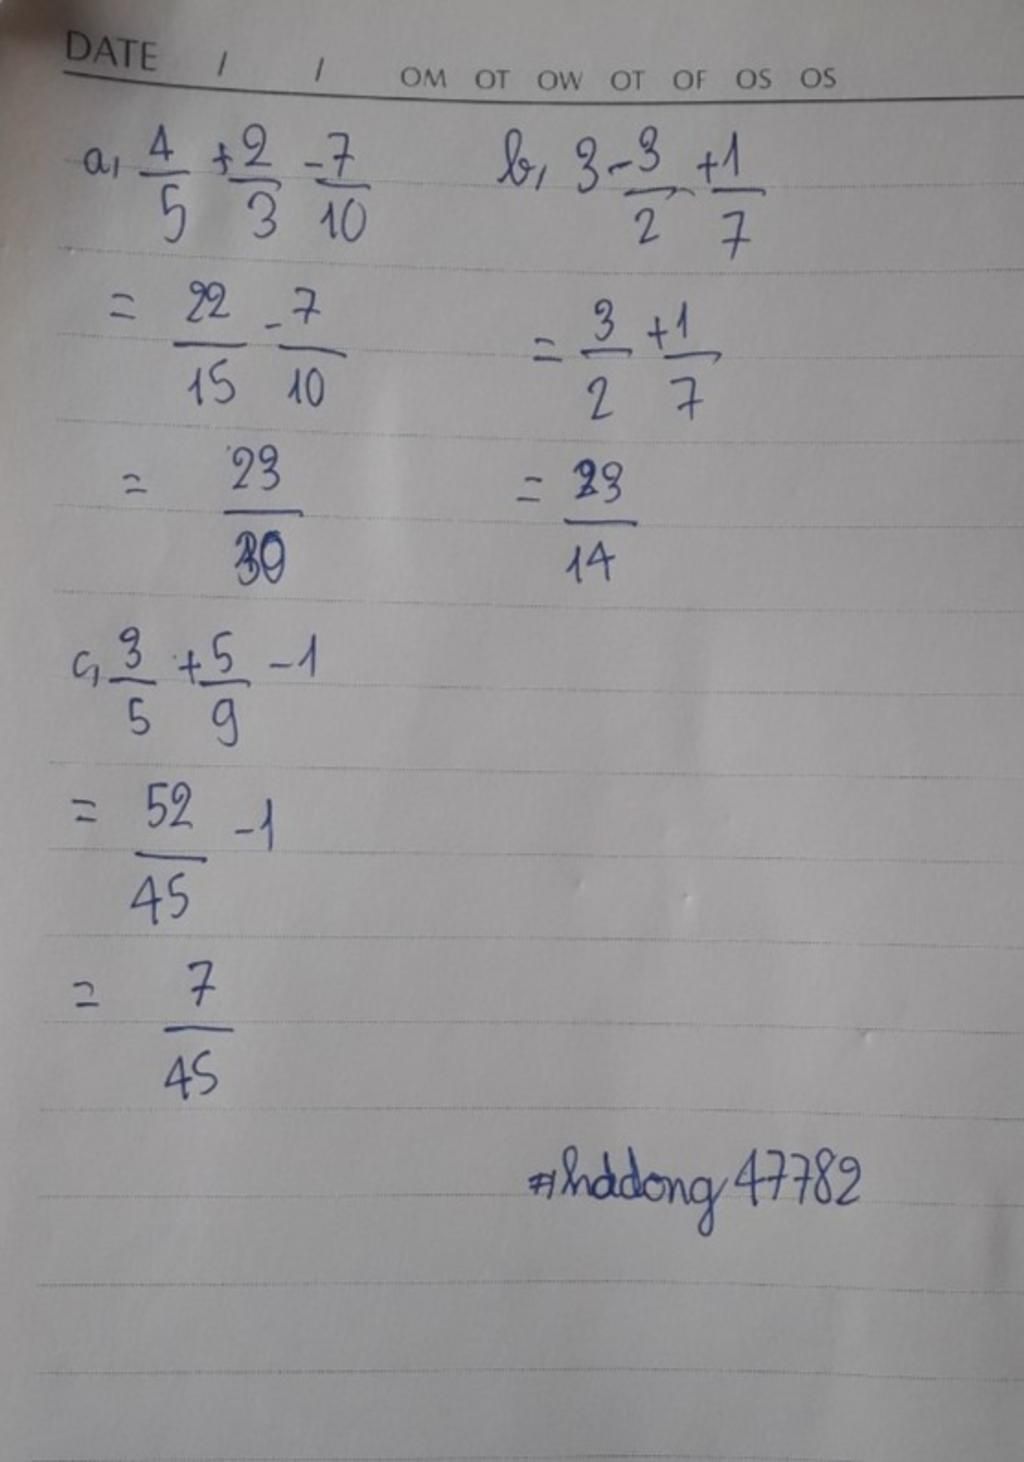 DATE / / OM OT OW OT OF OS OS
a, 4/5 + 2/3 - 7/10
= 22/15 - 7/10
= 23/30
b, 3 - 3/2 + 1/7
= 3/2 + 1/7
= 23/14
c, 3/5 + 5/9 - 1
= 52/45 - 1
= 7/45
#hddong47782